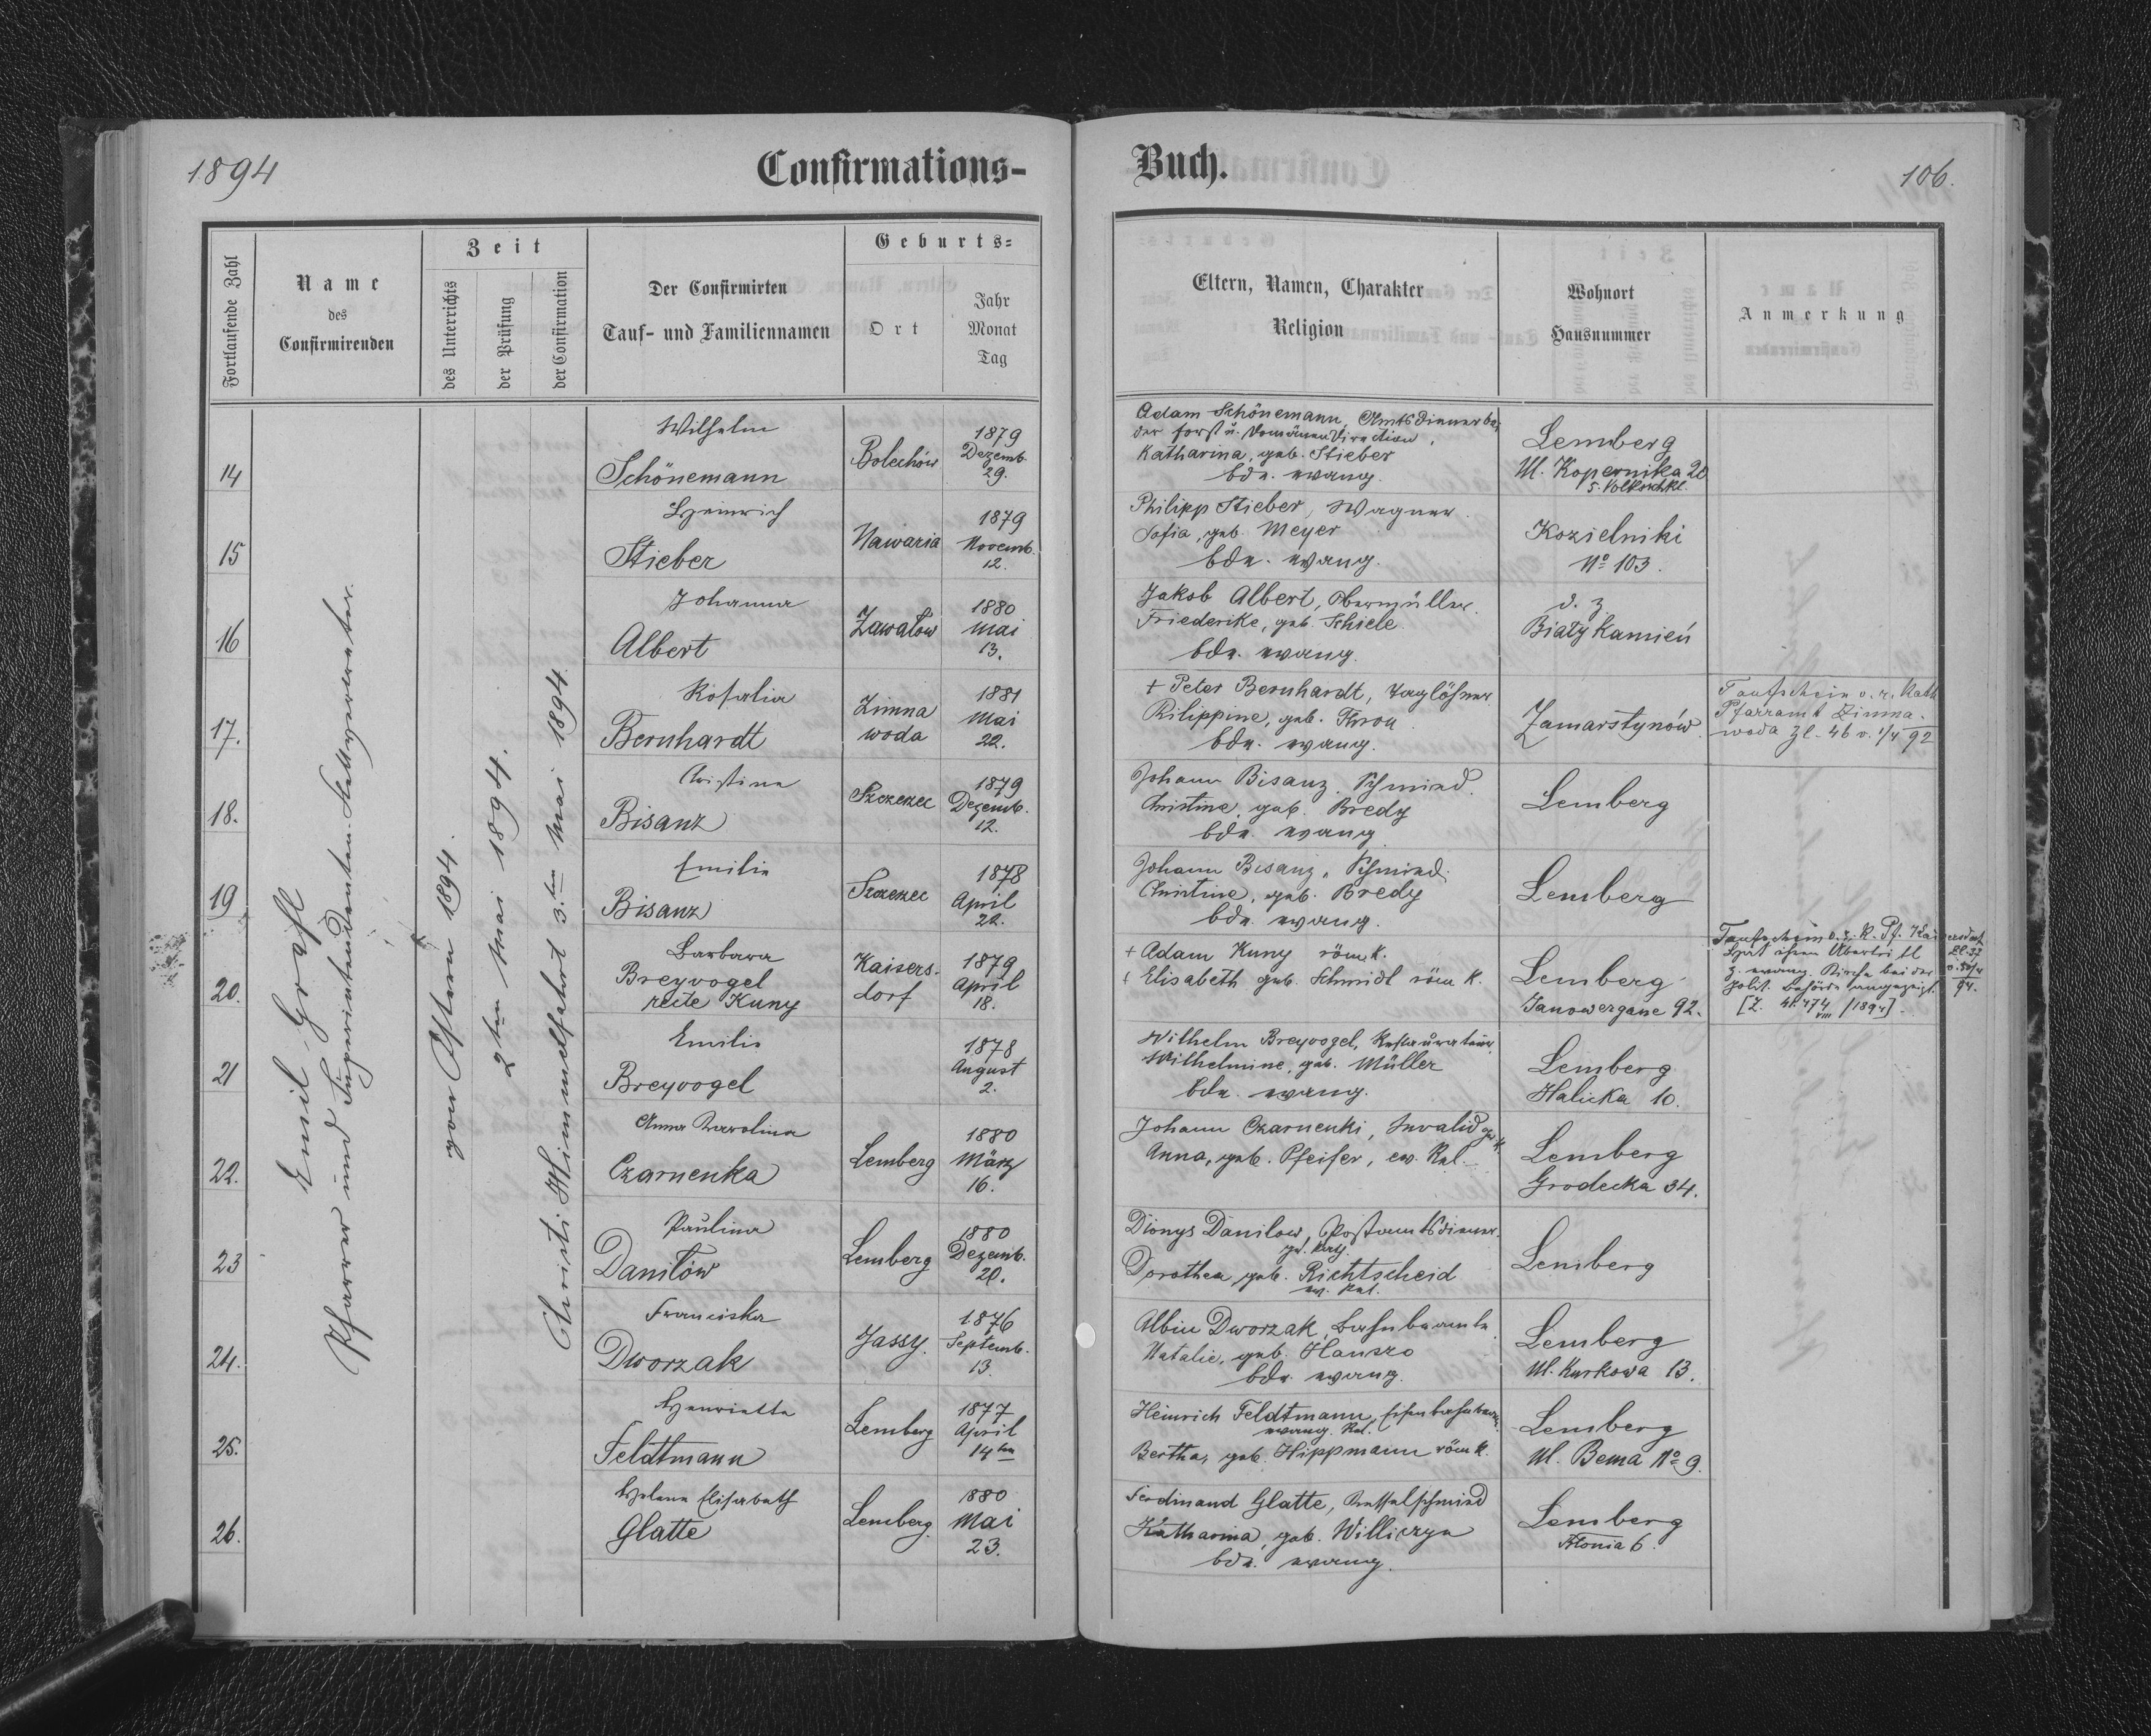 1894
Confirmations-
Buch.
106.
Fortlaufende Zahl
Name
des
Confirmirenden
Zeit
des Unterrichts
der Prüfung
der Confirmation
Der Confirmirten
Tauf- und Familiennamen
Geburts=
Ort
Jahr
Monat
Tag
Eltern, Namen, Charakter
Religion
Wohnort
Hausnummer
Anmerkung
Emil Grafl
Pfarrer und Superintendenten-Stellvertreter.
vor Ostern 1894.
2ten Mai 1894.
Christi Himmelfahrt 3.ten Mai 1894.
14
Wilhelm
Schönemann
Bolechów
1879
Dezemb.
29.
Adam Schönemann, Amtsdiener bei
der Forst u. Domänendirection,
Katharina, geb. Stieber
bde. evang.
Lemberg
Ul. Kopernika 20
5. Volksschkl.
15
Heinrich
Stieber
Nawaria
1879
Novemb.
12.
Philipp Stieber, Wagner.
Sofia, geb. Meyer
bde. evang.
Kozielniki
No 103.
16
Johanna
Albert
Zawałow
1880
Mai
13.
Jakob Albert, Obermüller.
Friederike, geb. Schiele.
bde. evang.
d. z.
Biały Kamień
17.
Rosalia
Bernhardt
Zimna
woda
1881
Mai
22.
+ Peter Bernhardt, Taglöhner
Filippine, geb.
bde. evang.
Zamarstynów.
Taufschein v. r. kath
Pfarramt Zimna-
woda Zl. 46 v. 1/4 92
18.
Christine
Bisanz
Szczerzec
1879
Dezemb.
12.
Johann Bisanz, Schmied.
Christine, geb. Bredy
bde. evang
Lemberg
19
Emilie
Bisanz
Szczerzec
1878
April
22.
Johann Bisanz, Schmied.
Christine, geb. Bredy
bde. evang.
Lemberg
20.
Barbara
Breyvogel
recte Kuny
Kaisers-
dorf
1879
April
18.
+ Adam Kuny röm. k.
+ Elisabeth geb. Schmidt röm k.
Lemberg
Janowergasse 92.
Taufschein v. r. k. Pf. Kaisersdorf
Zl. 37
Hat ihren Übertritt
z. evang. Kirche bei der
polit. Behörde angezeigt.
94.
21
Emilie
Breyvogel
1878
August
2.
Wilhelm Breyvogel, Restaurateur,
Wilhelmine, geb. Müller
bde. evang.
Lemberg
Halicka 10.
22.
Anna Karolina
Czarnenka
Lemberg
1880
März
16.
Johann Czarnenki, Invalid
Anna, geb. Pfeifer, ev. Rel.
Lemberg
Grodecka 34.
23
Paulina
Daniłów
Lemberg
1880
Dezemb.
20.
Dionys Danilow, Postamtsdiener.
Dorothea geb. Richtscheid
ev. Rel.
Lemberg
24.
Franciska
Dworzak
Jassy.
1876
Septemb.
13.
Albin Dworzak, Bahnbeamte
Natalie, geb. Hanszo
bde. evang.
Lemberg
Ul. Kurkowa 13.
25.
Henriette
Feldtmann
Lemberg
1877
April
14ten
Heinrich Feldtmann,
evang. Rel.
Bertha, geb. Hippmann röm k.
Lemberg
Ul. Bema No 9.
26.
Helene Elisabeth
Glatte
Lemberg.
1880
Mai
23.
Ferdinand Glatte, Kesselschmied
Katharina, geb. Williczyn
bde. evang.
Lemberg
Błonia 6.